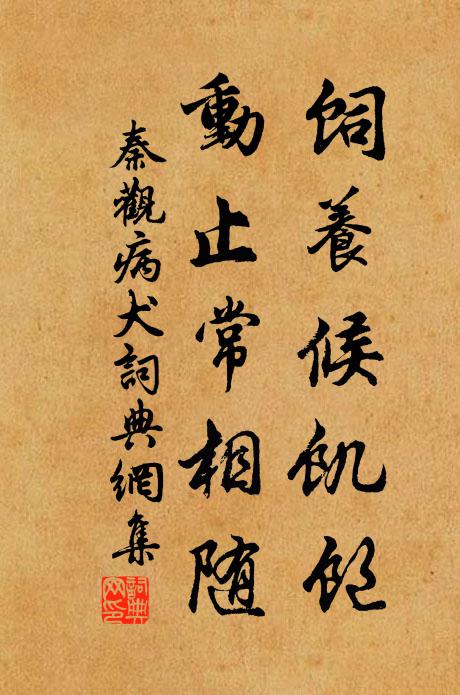 飼養候飢飽
動止常相随
秦觀病犬詞典網集
詞典
网印